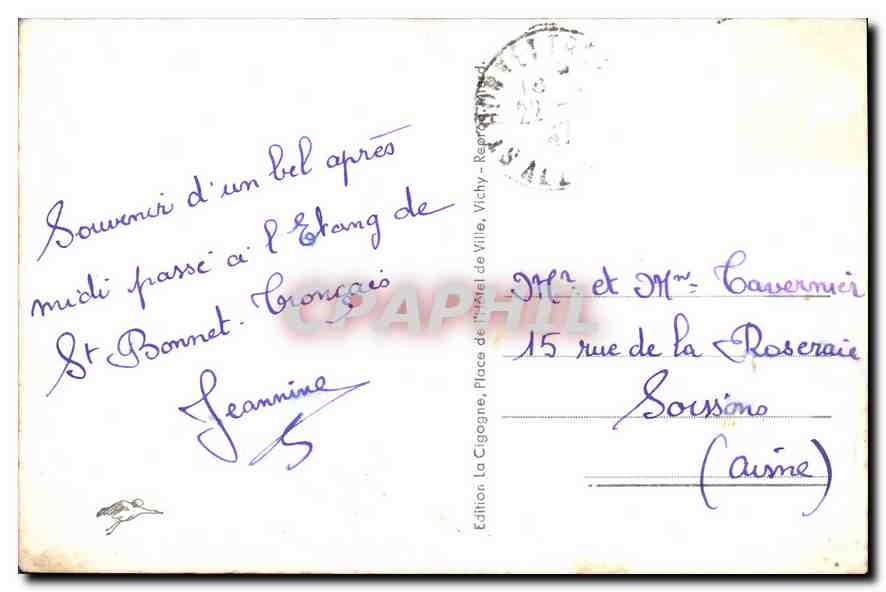 Souvenir d'un bel après
midi passé à l'Etang de
St Bonnet. Tronçais
Jeannine
Edition La Cigogne, Place de l'Hôtel de Ville, Vichy - Reprod.
CPAPHIL
18
22
Mr et Mme Tavernier
15 rue de la Roseraie
Soissons
(Aisne)